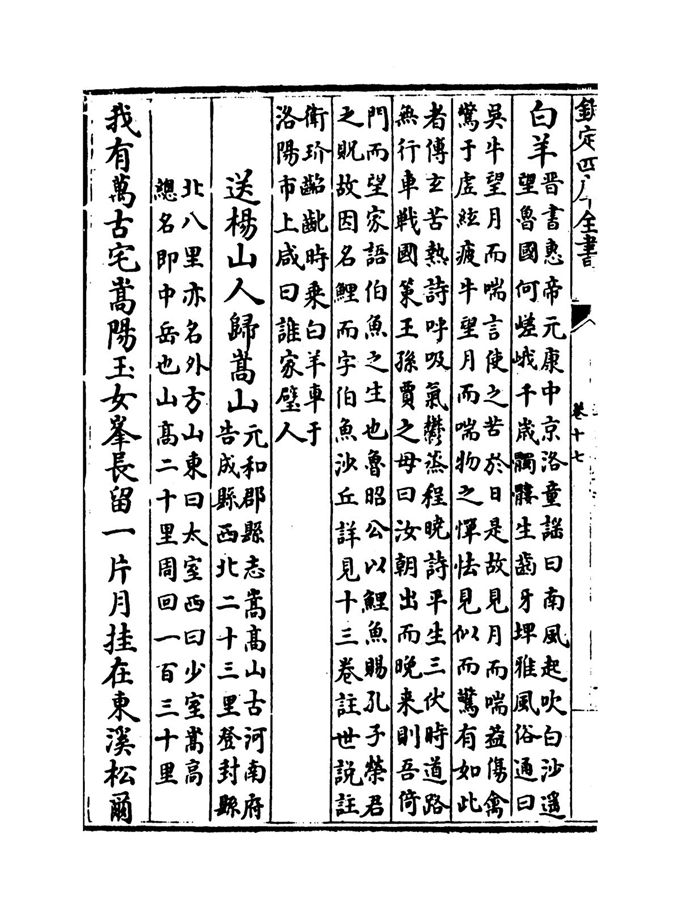 欽定四庫全書
卷十七
白羊晉書惠帝元康中京洛童謡曰南風起吹白沙遥
望魯國何嵯峨千歳髑髏生齒牙埤雅風俗通曰
吳牛望月而喘言使之苦於日是故見月而喘益傷禽
驚于虚絃疲牛望月而喘物之憚怯見似而驚有如此
者傅玄苦熱詩呼吸氣鬱蒸程曉詩平生三伏時道路
無行車戰國策王孫賈之母曰汝朝出而晚来則吾倚
門而望家語伯魚之生也魯昭公以鯉魚賜孔子榮君
之貺故因名鯉而字伯魚沙丘詳見十三卷註世說註
衛玠齠齔時乘白羊車于
洛陽市上咸曰誰家璧人
送楊山人歸嵩山元和郡縣志嵩高山古河南府
告成縣西北二十三里登封縣
北八里亦名外方山東曰太室西曰少室嵩高
總名即中岳也山高二十里周回一百三十里
我有萬古宅嵩陽玉女峯長留一片月挂在東溪松爾